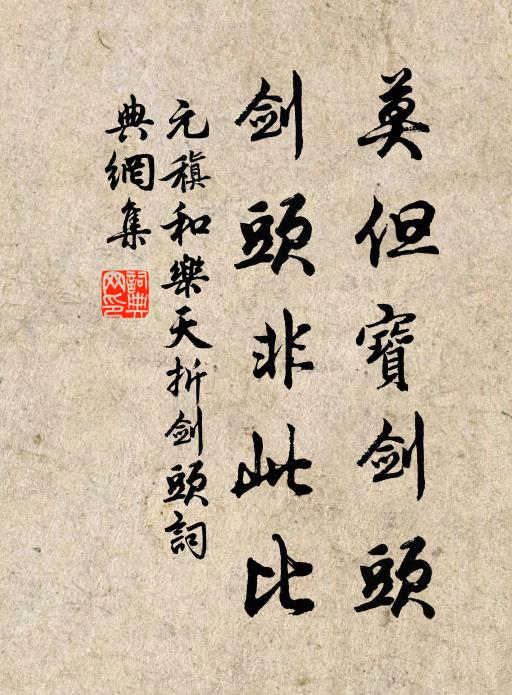 莫但寶劍頭
劍頭非此比
元稹和樂天折劍頭詞
典網集
詞典
网印